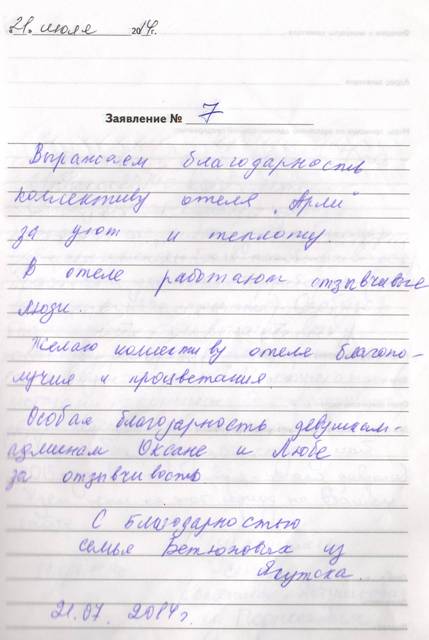 21. июля 2014г.
Заявление № 7
Выражаем благодарность
коллективу отеля „Арли“
за уют и теплоту.
В отеле работают отзывчивые
люди.
Желаю коллективу отеля благопо-
лучия и процветания.
Особая благодарность девушкам-
админам Оксане и Любе
за отзывчивость
С благодарностью
семья из
Якутска.
21.07. 2014г.